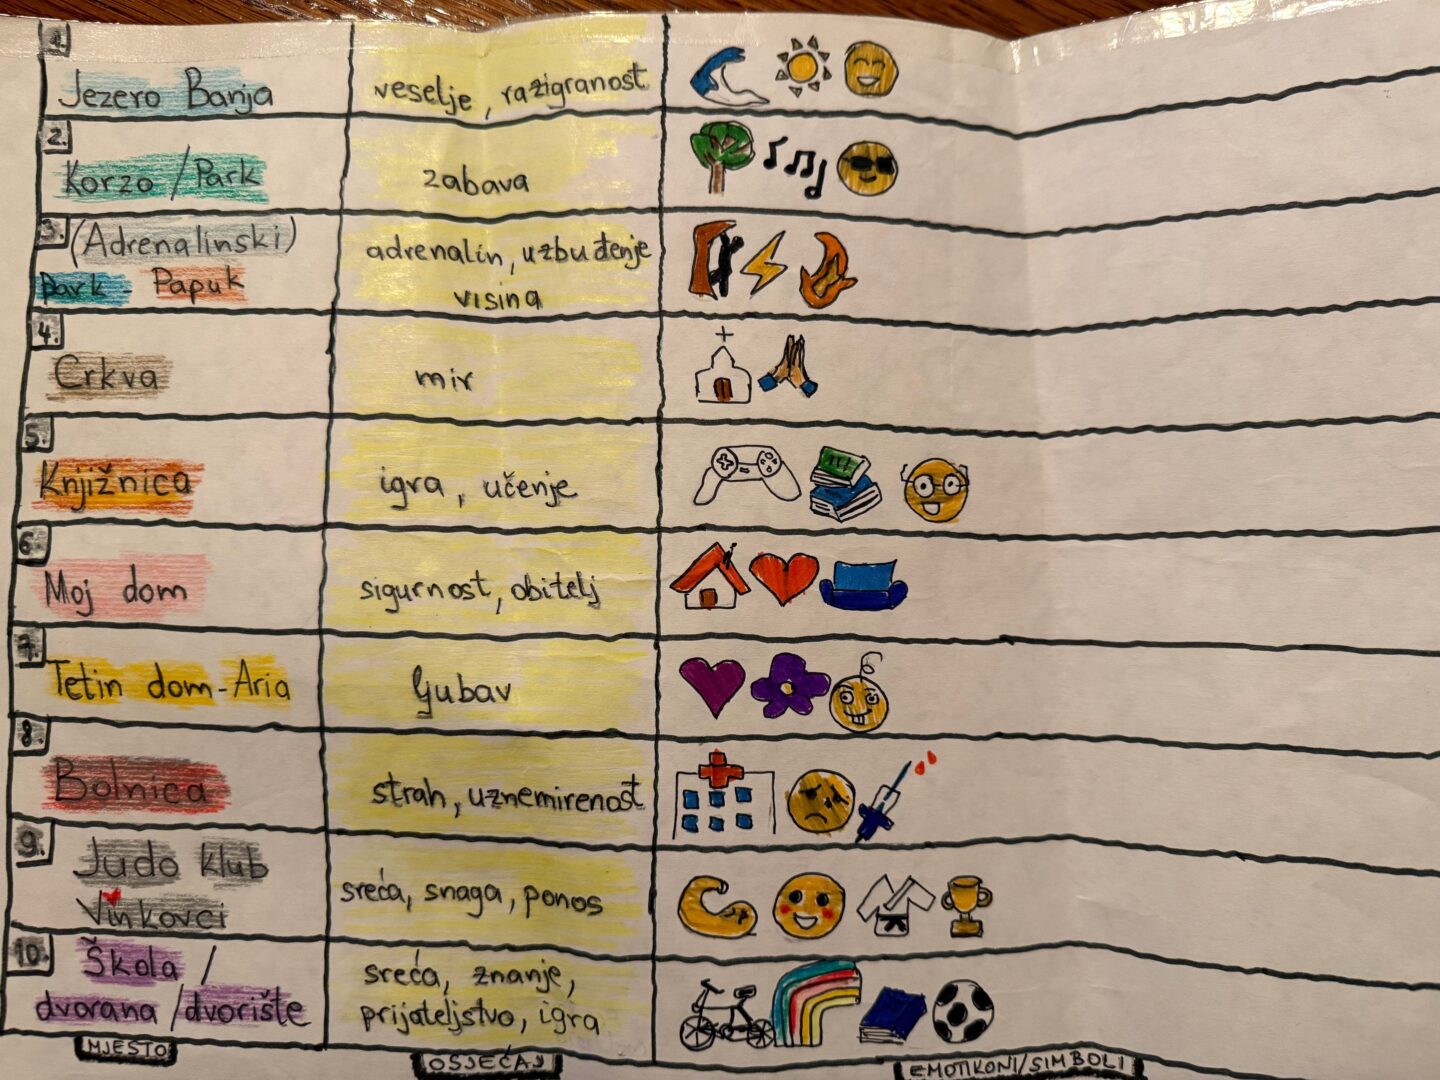 1.
Jezero Banja
veselje, razigranost
2.
Korzo / Park
zabava
3.
(Adrenalinski)
park - Papuk
adrenalin, uzbuđenje
visina
4.
Crkva
mir
5.
Knjižnica
igra, učenje
6.
Moj dom
sigurnost, obitelj
7.
Tetin dom - Aria
ljubav
8.
Bolnica
strah, uznemirenost
9.
Judo klub
Vinkovci
sreća, snaga, ponos
10.
Škola /
dvorana / dvorište
sreća, znanje,
prijateljstvo, igra
MJESTO
OSJEĆAJ
EMOTIKONI/SIMBOLI